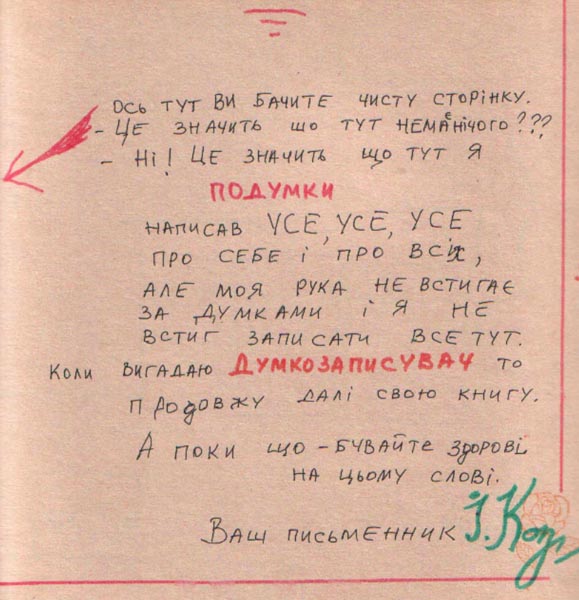 Ось тут ви бачите чисту сторінку.
- Це значить шо тут немає нічого???
- Ні! Це значить що тут я
ПОДУМКИ
написав УСЕ, УСЕ, УСЕ
про себе і про всіх,
але моя рука не встигає
за думками і я не
встиг записати все тут.
Коли вигадаю ДУМКОЗАПИСУВАЧ то
продовжу далі свою книгу.
А поки що - бувайте здорові
на цьому слові.
Ваш письменник І.